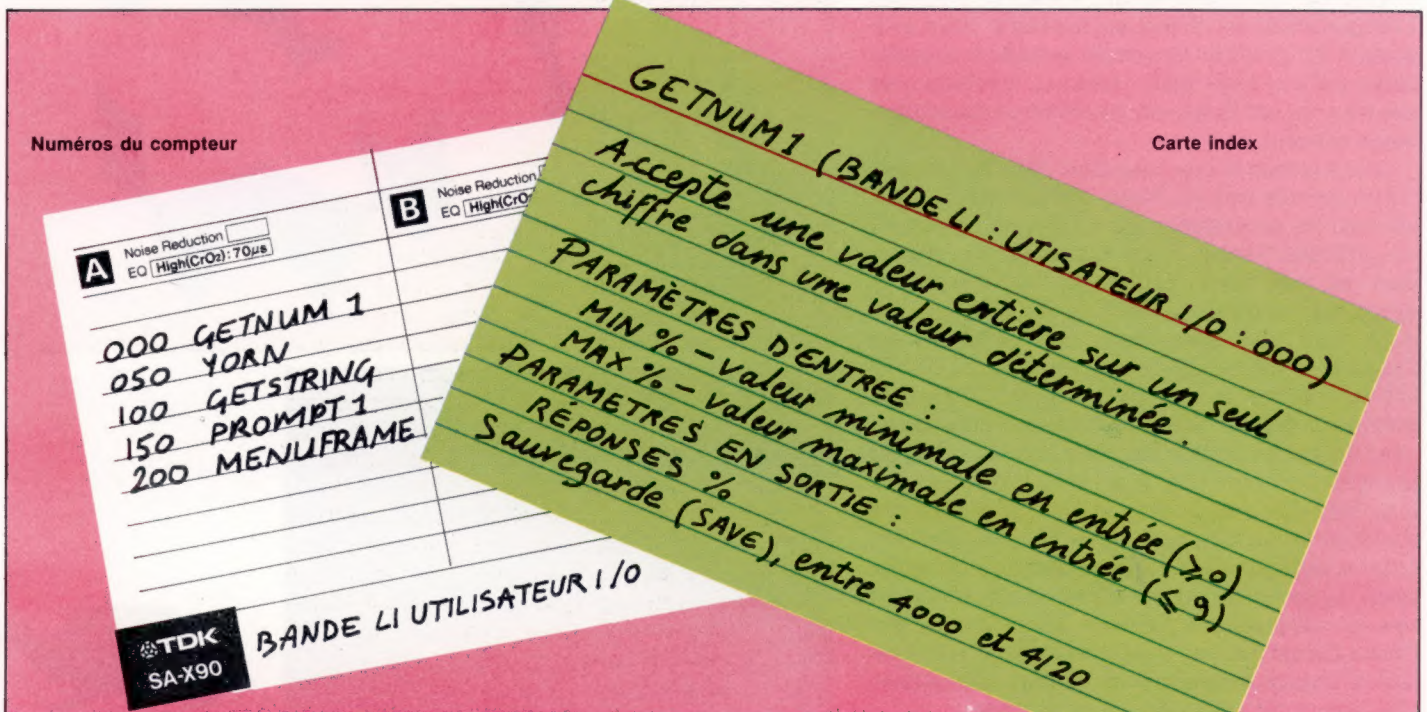 Numéros du compteur
Carte index
A Noise Reduction
EQ High(CrO2): 70µs
B Noise Reduction
EQ High(CrO
000 GETNUM 1
050 YORN
100 GETSTRING
150 PROMPT 1
200 MENUFRAME
TDK
SA-X90
BANDE LI UTILISATEUR I/O
GETNUM1 (BANDE LI : UTISATEUR I/O : 000)
Accepte une valeur entière sur un seul
chiffre dans une valeur déterminée.
PARAMÈTRES D'ENTREE :
MIN % - valeur minimale en entrée (⩾0)
MAX % - valeur maximale en entrée (⩽ 9)
PARAMETRES EN SORTIE :
RÉPONSES %
Sauvegarde (SAVE), entre 4000 et 4120